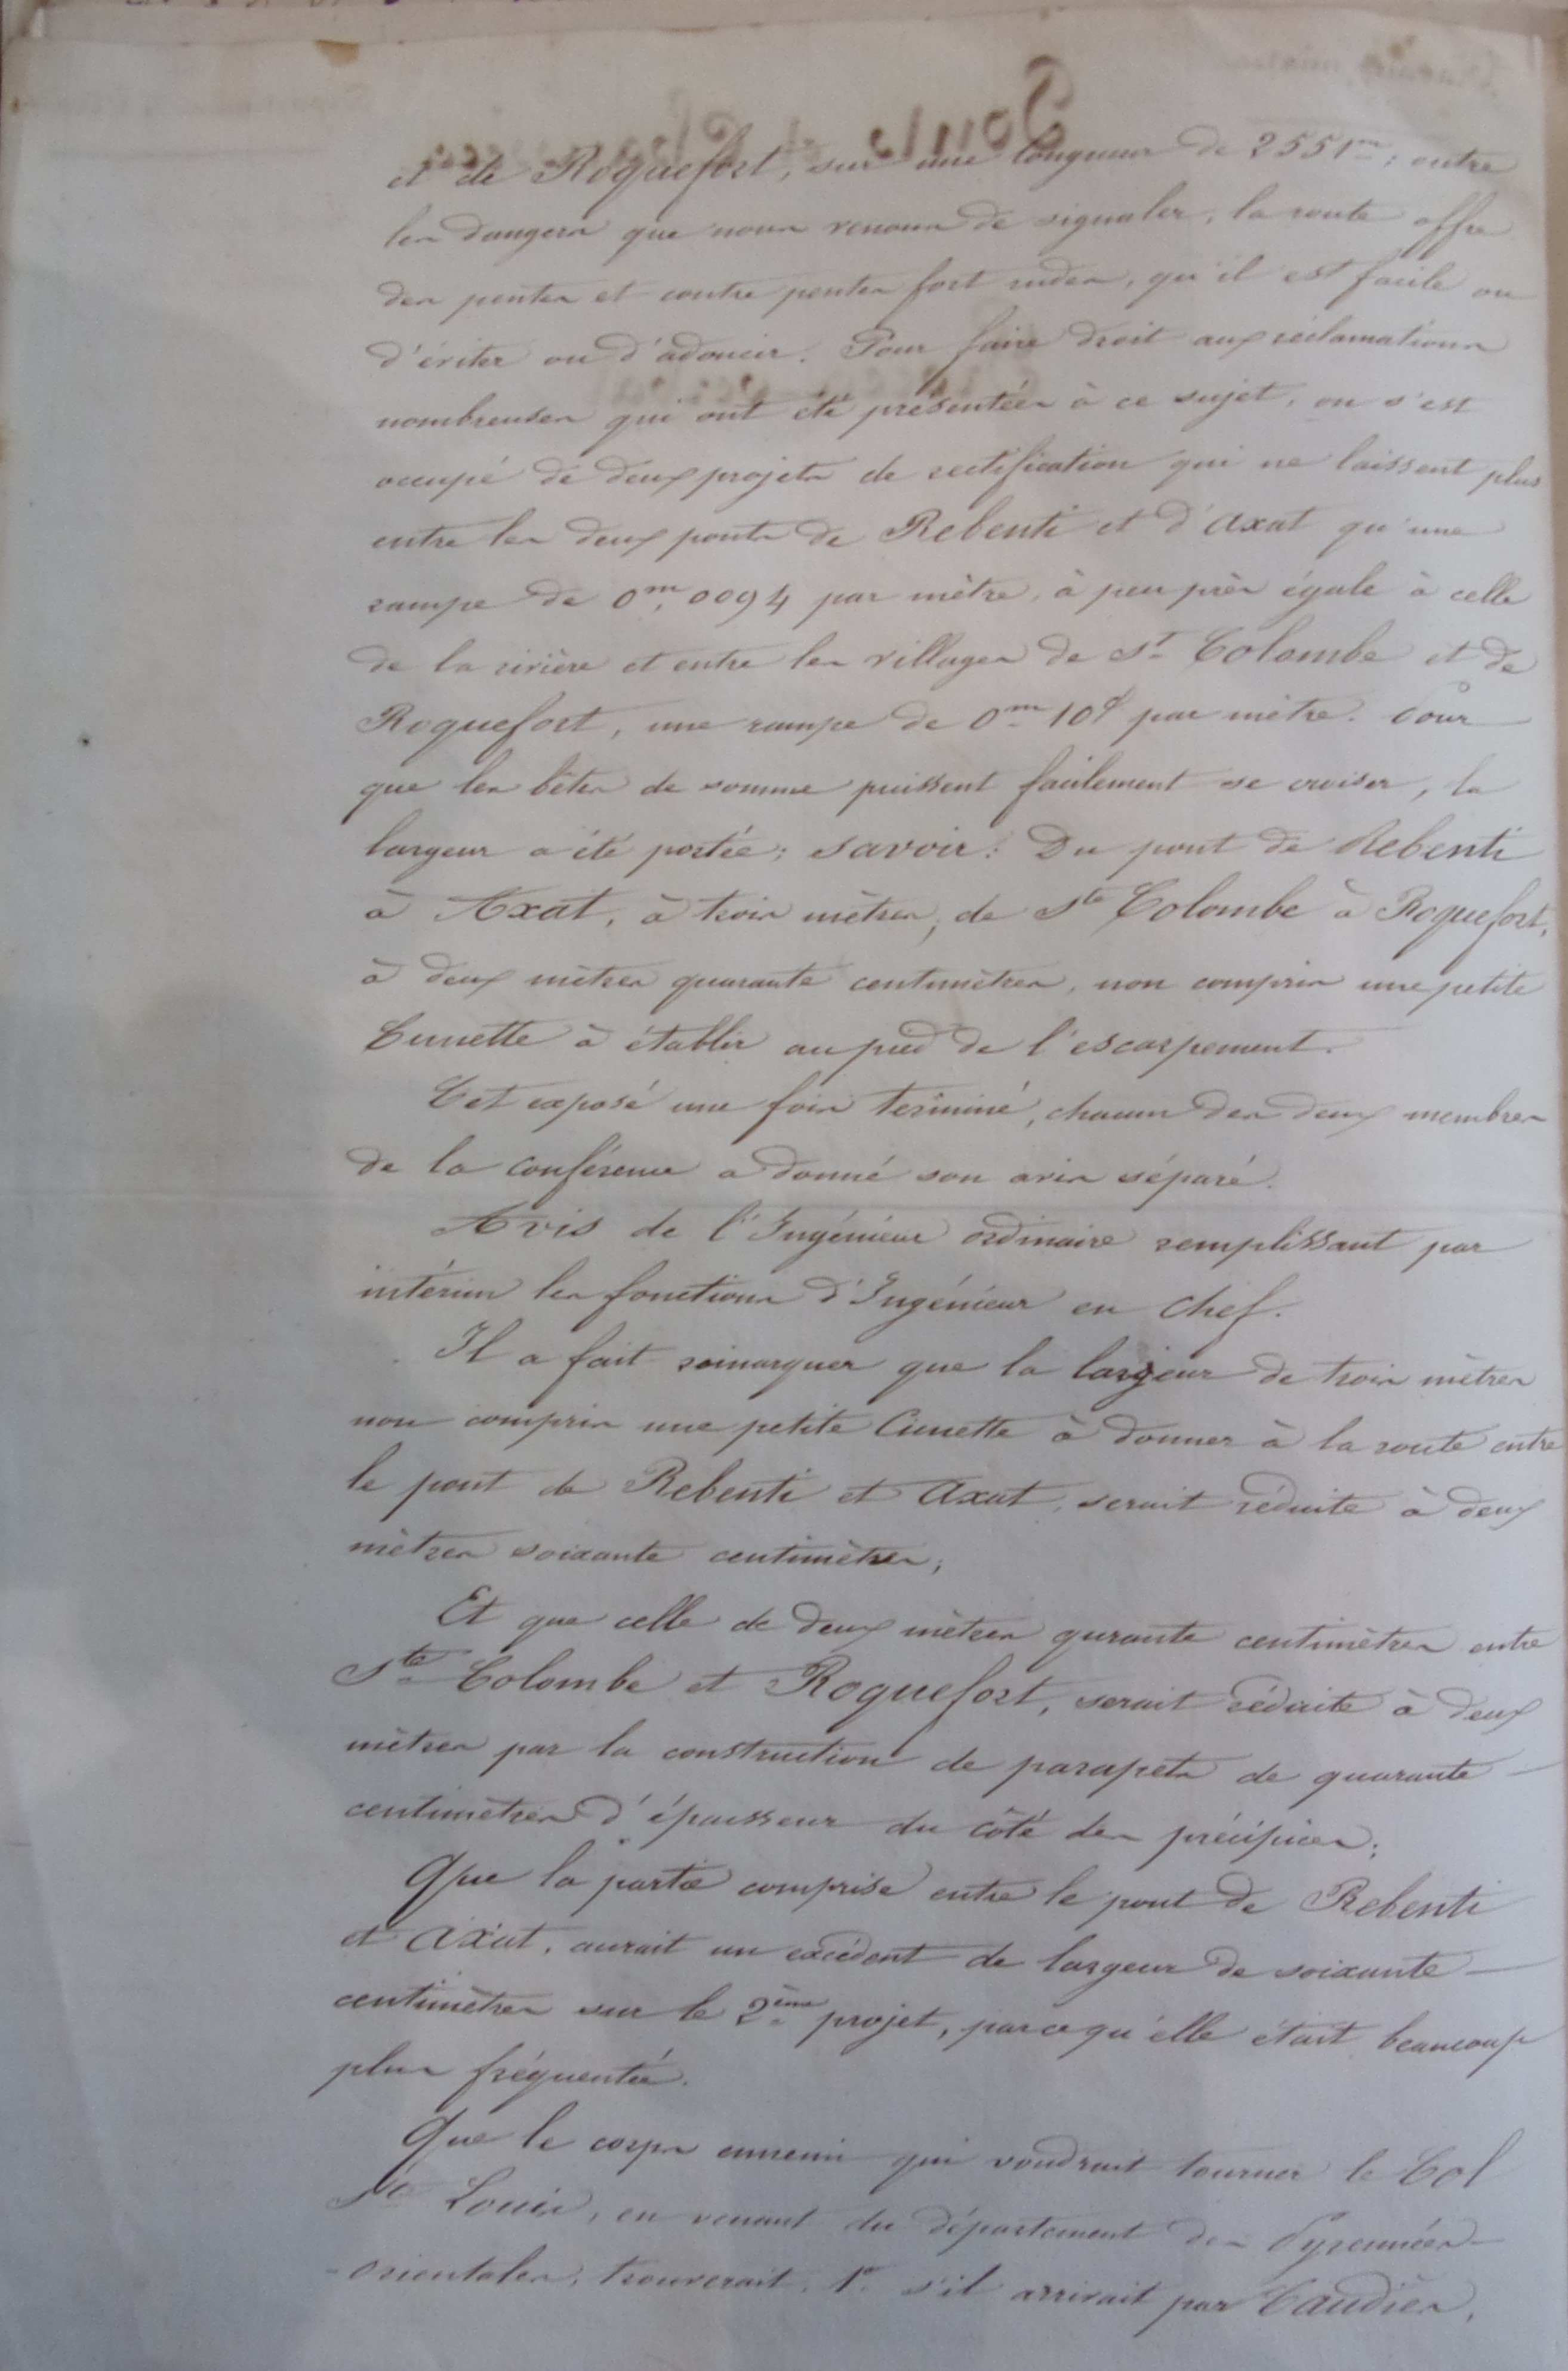 et de Roquefort, sur une longueur de 2551m; outre
les dangers que nous venons de signaler, la route offre
des pentes et contre pentes fort rudes, qu'il est facile ou
d'éviter ou d'adoucir. Pour faire droit aux réclamations
nombreuses qui ont été présentées à ce sujet, on s'est
occupé de deux projets de rectification qui ne laissent plus
entre les deux ponts de Rebenti et d'Axat qu'une
rampe de 0m,0094 par mètre, à peu près égale à celle
de la rivière et entre les villages de Ste Colombe et de
Roquefort, une rampe de 0m 10c par mètre. Pour
que les bêtes de somme puissent facilement se croiser, la
largeur a été portée; savoir: Du pont de Rebenti
à Axat, à trois mètres, de Ste Colombe à Roquefort,
à deux mètres quarante centimètres, non compris une petite
Cunette à établir au pied de l'escarpement.
Cet exposé une fois terminé, chacun des deux membres
de la conférence a donné son avis séparé.
Avis de l'Ingénieur ordinaire remplissant par
intérim les fonctions d'Ingénieur en Chef.
Il a fait remarquer que la largeur de trois mètres
non compris une petite Cunette à donner à la route entre
le pont de Rebenti et Axat, serait réduite à deux
mètres soixante centimètres;
Et que celle de deux mètres qurante centimètres entre
Ste Colombe et Roquefort, serait réduite à deux
mètres par la construction de parapets de quarante
centimètres d'épaisseur du côté des précipices;
Que la partie comprise entre le pont de Rebenti
et Axat, aurait un excédent de largeur de soixante
centimètres sur le 2ème projet, parcequ'elle était beaucoup
plus fréquentée.
Que le corps ennemi qui voudrait tourner le Col
St Louis, en venant du département des Pyrennées
orientales, trouverait, 1° s'il arrivait par Caudiès,